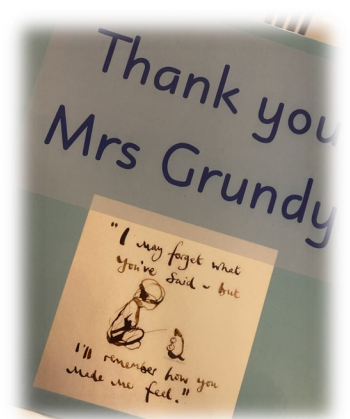 Thank you
Mrs Grundy
"I may forget what
you've said ~ but
I'll remember how you
made me feel."